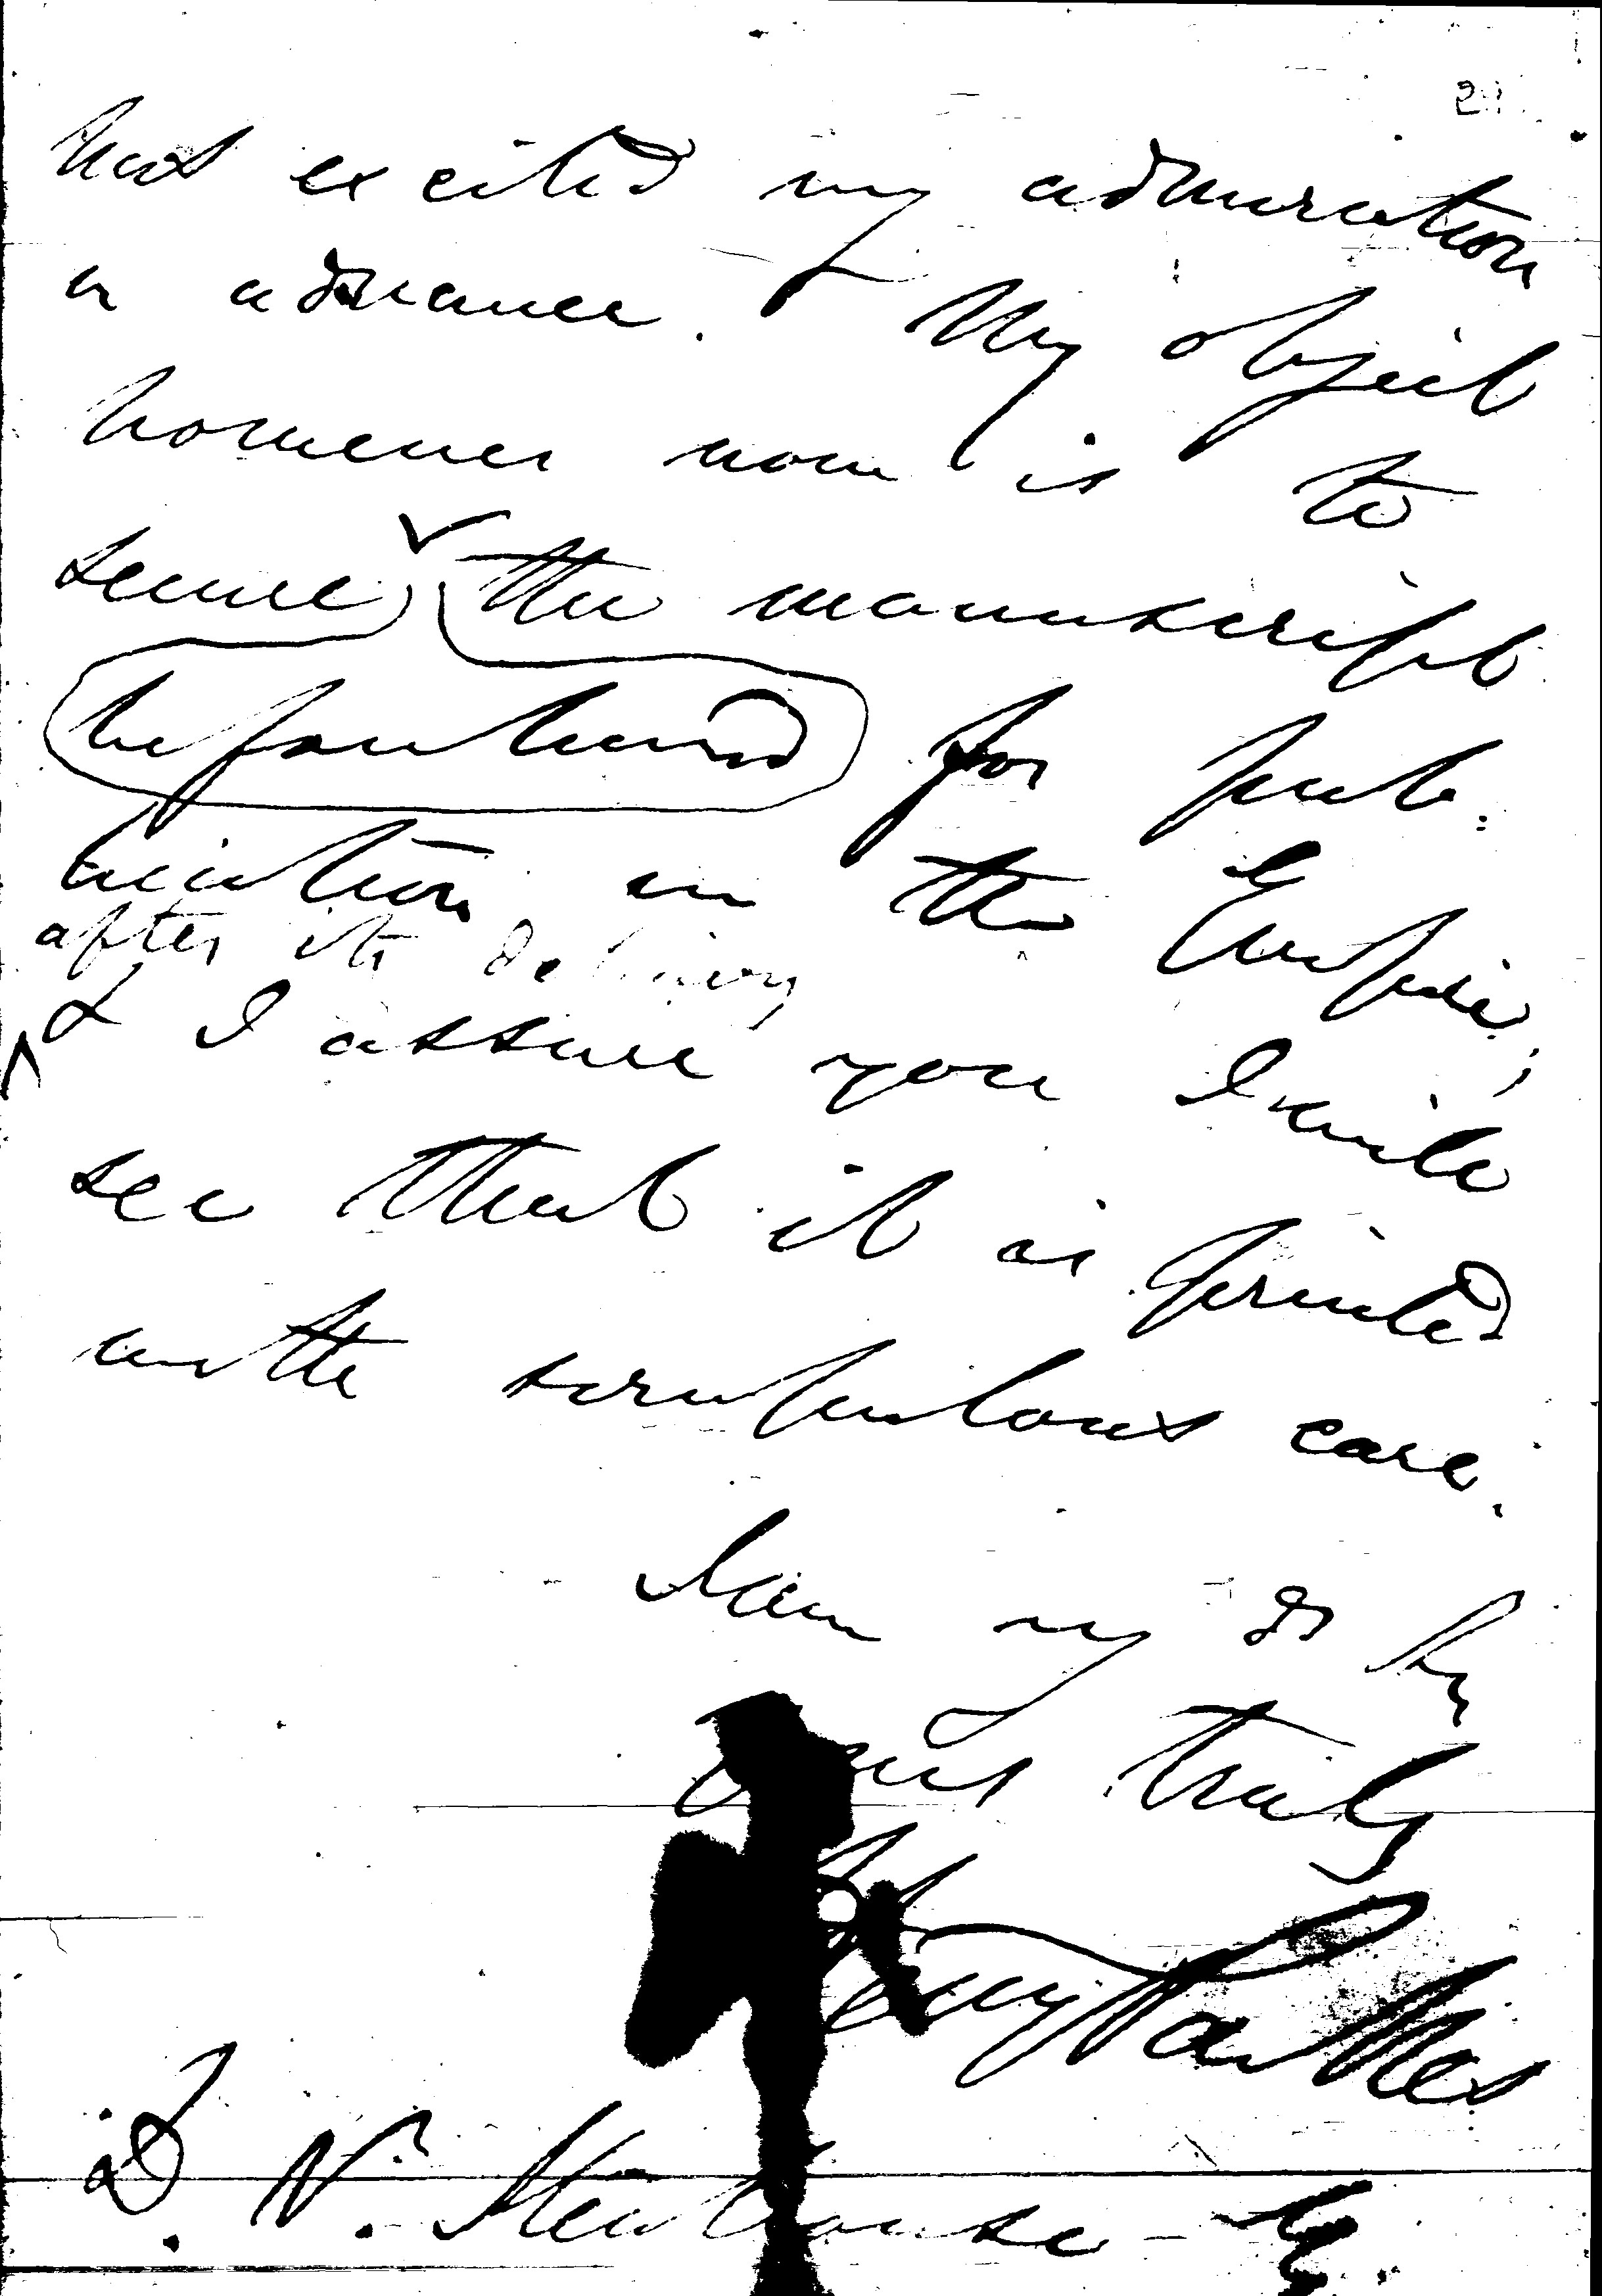 has excited my admiration
in advance. My object
however now is to
secure the manuscript
beforehand for pub=
lication in the Empire,
after its delivery
& I assure you I will
see that it is printed
with scrupulous care.
I am my dr Sir
yours truly
Henry Parkes
D. H. Deniehy Esq